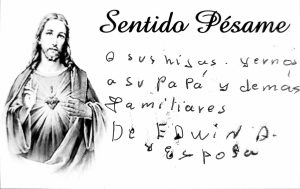 Sentido Pésame
A sus hijas. yernos
a su PaPá y demás
Familiares
De EDWIN D.
y Esposa